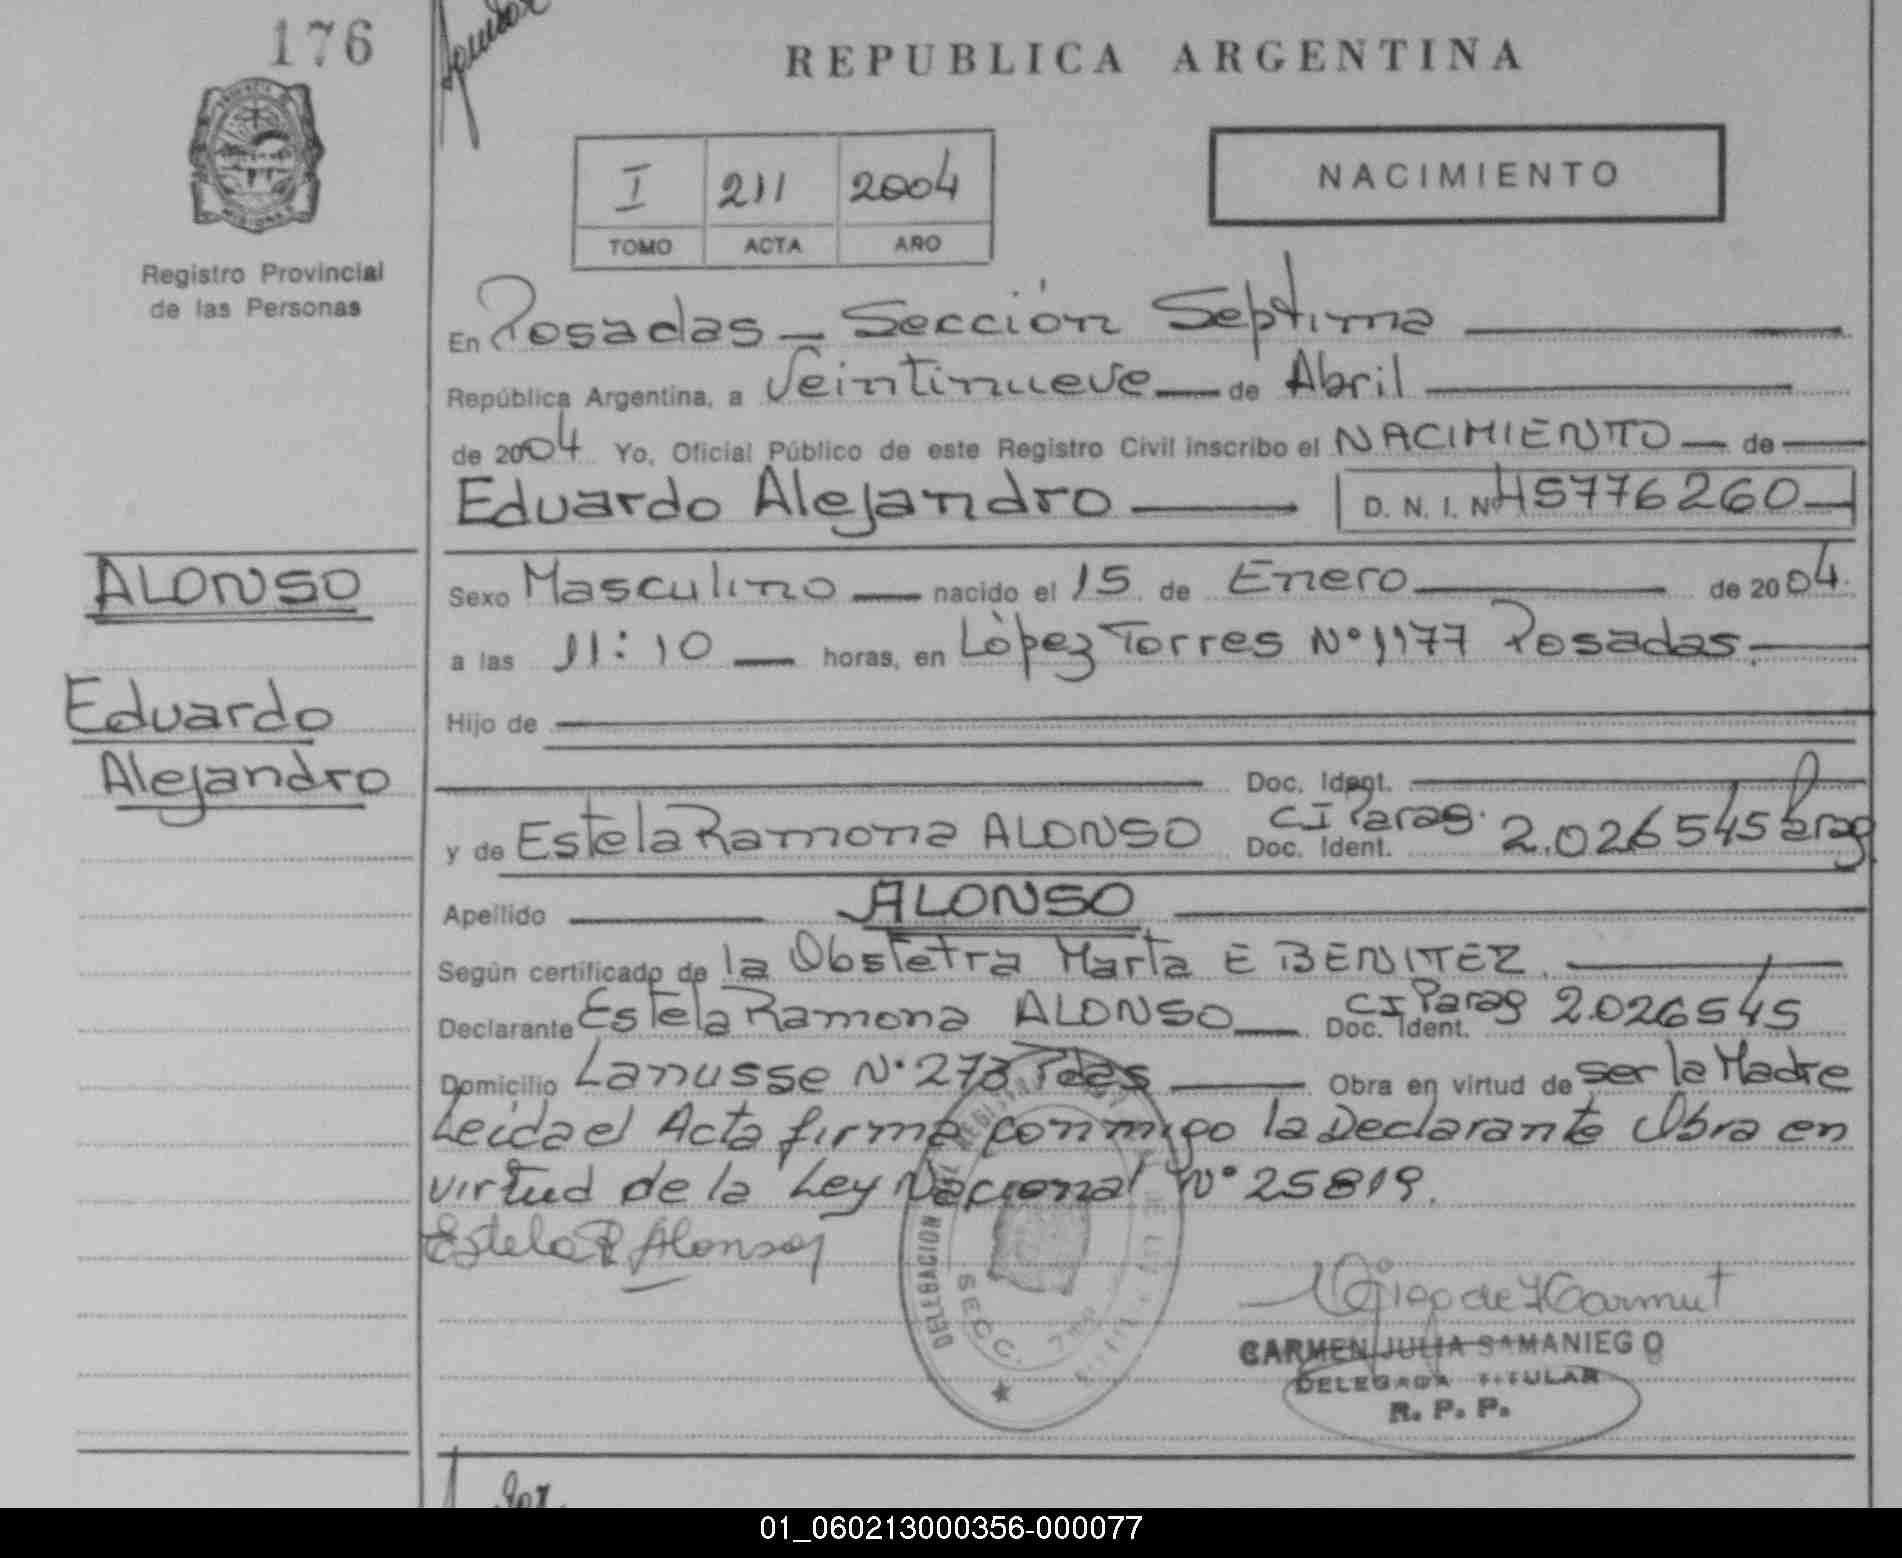 176
REPUBLICA ARGENTINA
I 211 2004
TOMO ACTA AÑO
NACIMIENTO
Registro Provincial
de las Personas
En Posadas - Sección Septima
República Argentina, a Veintinueve de Abril
de 2004 Yo, Oficial Público de este Registro Civil inscribo el NACIMIENTO de
Eduardo Alejandro D. N. I. Nº 45776260
ALONSO
Eduardo
Alejandro
Sexo Masculino nacido el 15 de Enero de 2004.
a las 11:10 horas, en López Torres Nº 1177 Posadas.
Hijo de
Doc. Ident.
y de Estela Ramona ALONSO Doc. Ident. CI Parag. 2.026545 Parag
Apellido ALONSO
Según certificado de la Obstetra Marta E BENITEZ.
Declarante Estela Ramona ALONSO Doc. Ident. CI Parag 2.026545
Domicilio Lanusse Nº 273 Pdas Obra en virtud de ser la Madre
Leida el Acta firma conmigo la Declarante Obra en
virtud de la Ley Nacional Nº 25819.
Estela R Alonso
DELEGACION
SECC. 7ma
CARMEN JULIA SAMANIEGO
DELEGADA TITULAR
R. P. P.
01_060213000356-000077